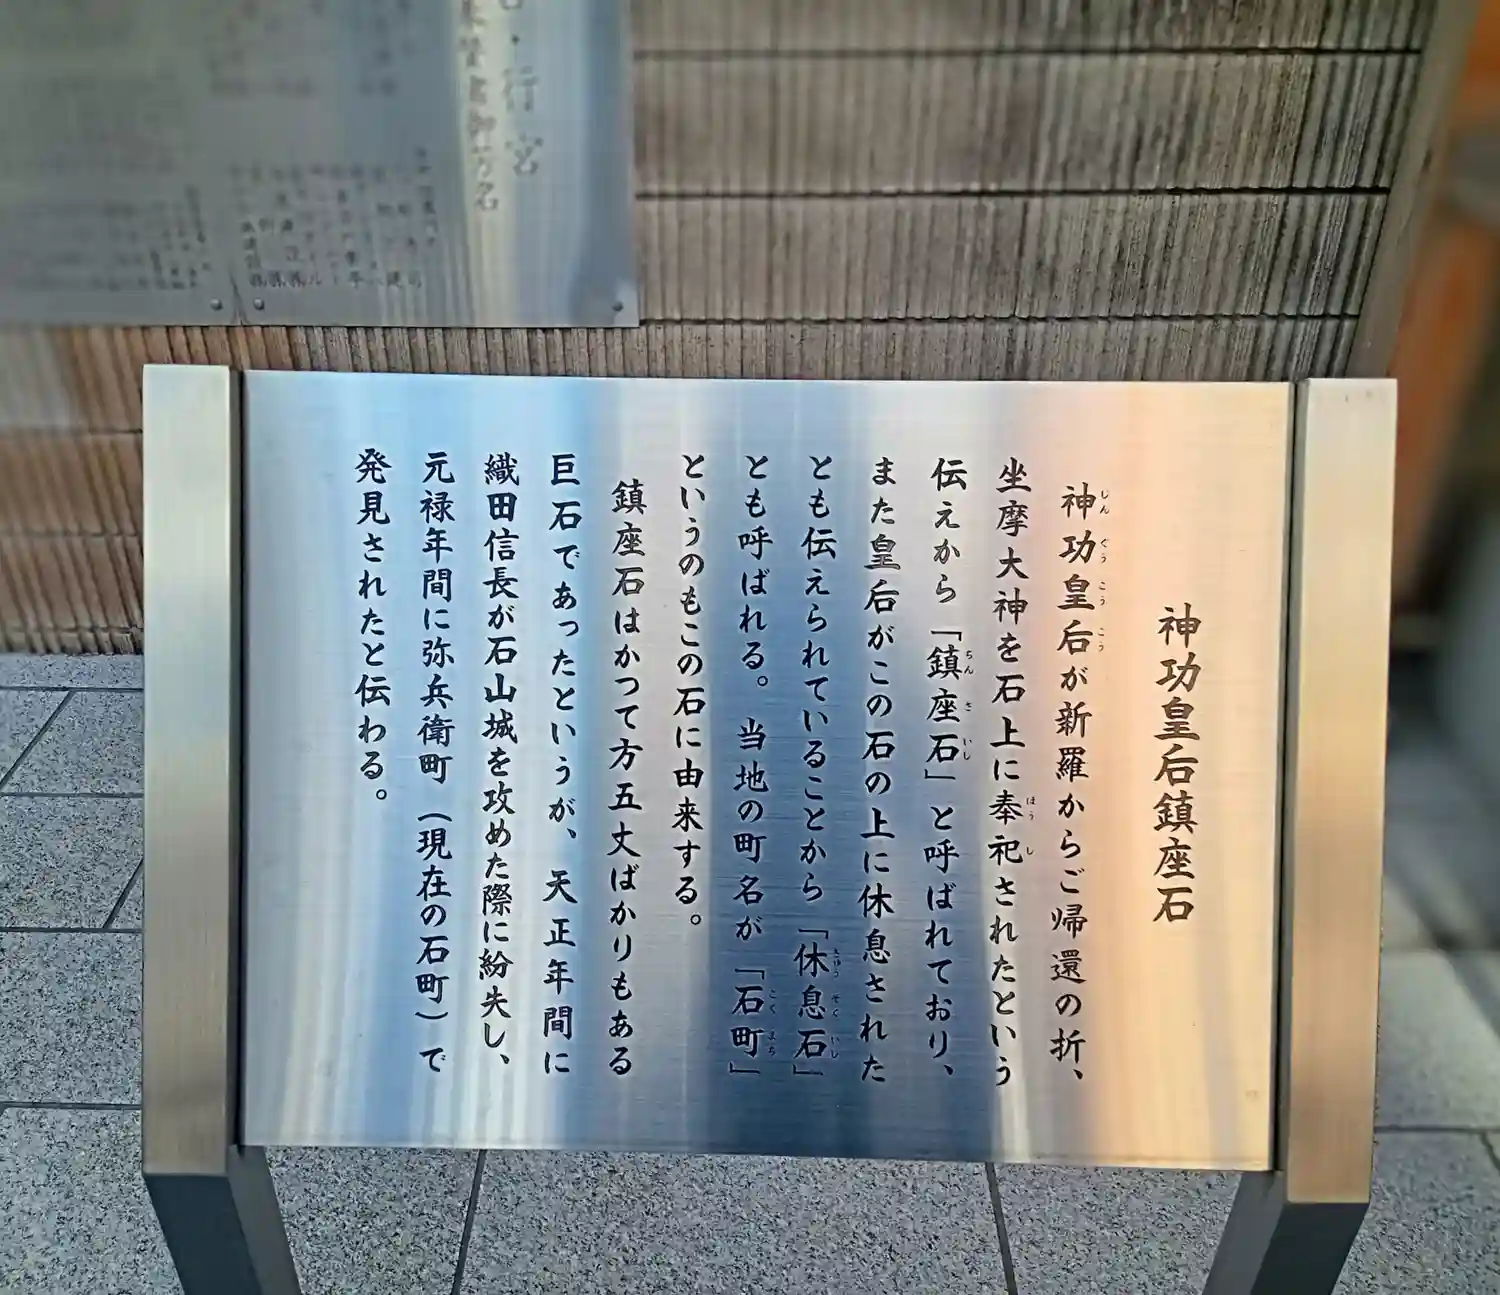 神功皇后鎮座石
神功皇后が新羅からご帰還の折、
坐摩大神を石上に奉祀されたという
伝えから「鎮座石」と呼ばれており、
また皇后がこの石の上に休息された
とも伝えられていることから「休息石」
とも呼ばれる。当地の町名が「石町」
というのもこの石に由来する。
鎮座石はかつて方五丈ばかりもある
巨石であったというが、天正年間に
織田信長が石山城を攻めた際に紛失し、
元禄年間に弥兵衛町（現在の石町）で
発見されたと伝わる。
・行宮
御芳名